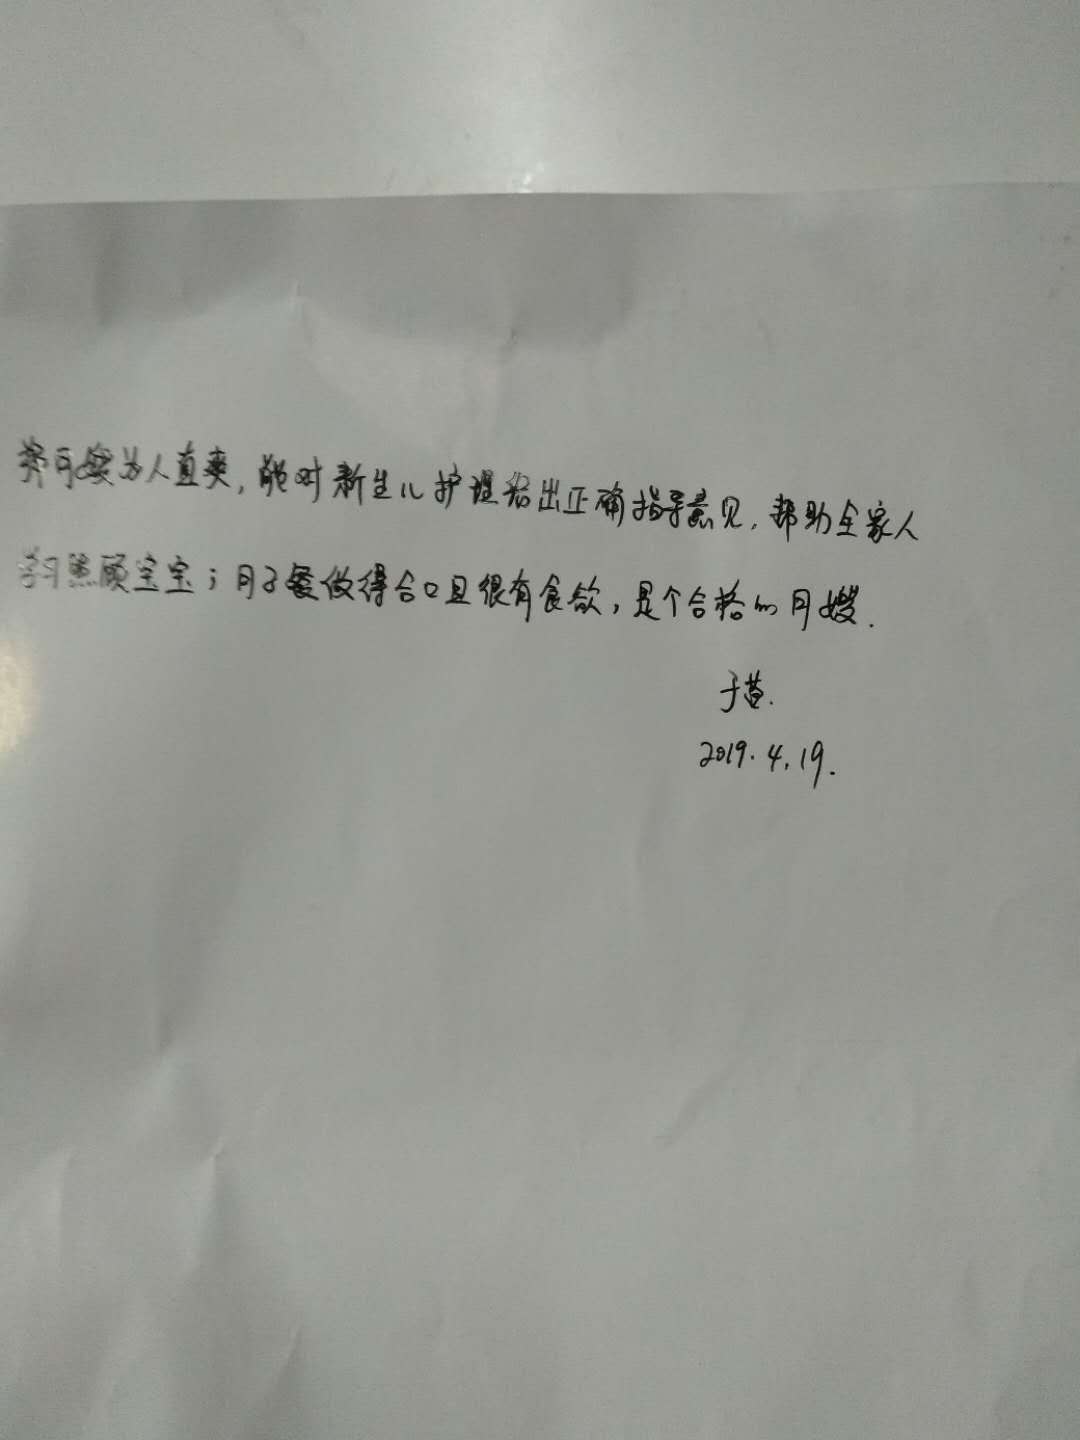 月嫂为人直爽,能对新生儿护理给出正确指导意见,帮助全家人
学习照顾宝宝;月子餐做得合口且很有食欲,是个合格的月嫂.
于苗.
2019.4.19.